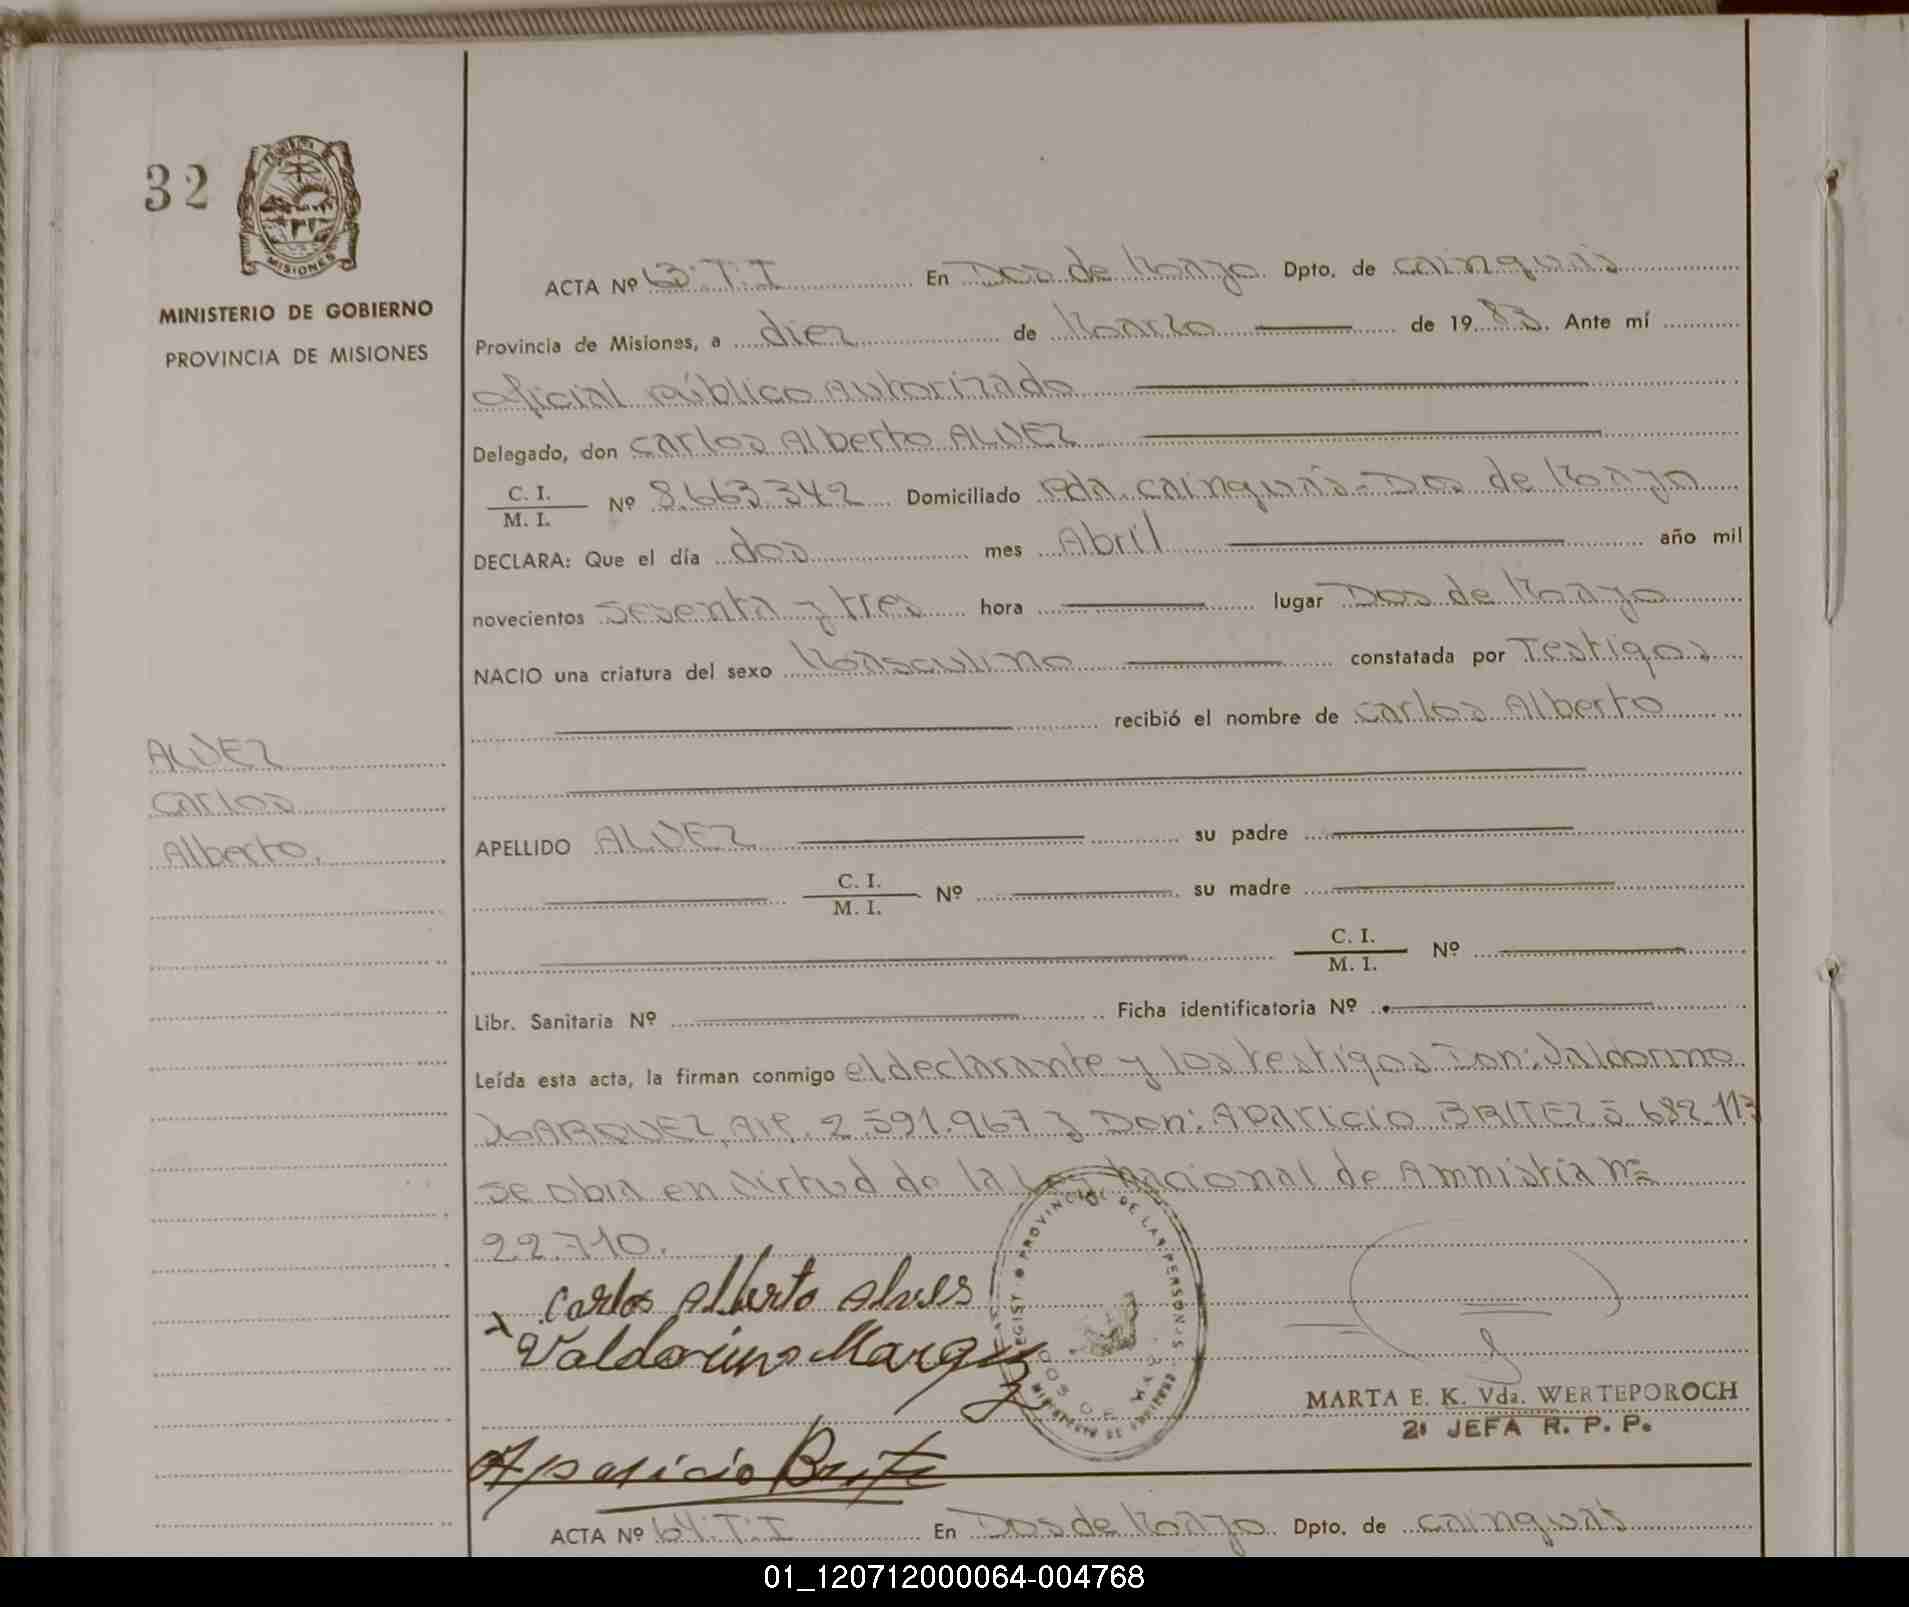 32
MISIONES
MINISTERIO DE GOBIERNO
PROVINCIA DE MISIONES
ACTA Nº 63:T:I En Dos de Mayo Dpto. de cainguás
Provincia de Misiones, a diez de Marzo de 1983. Ante mí
oficial público Autorizado
Delegado, don carlos Alberto ALVEZ
C. I.
M. I. Nº 8.663.342 Domiciliado pda. cainguás-Dos de Mayo
DECLARA: Que el día dos mes Abril año mil
novecientos sesenta y tres hora lugar Dos de Mayo
NACIO una criatura del sexo Masculino constatada por Testigos
recibió el nombre de carlos Alberto
ALVEZ
Carlos
Alberto.
APELLIDO ALVEZ su padre
C. I.
M. I. Nº su madre
C. I.
M. I. Nº
Libr. Sanitaria Nº Ficha identificatoria Nº
Leída esta acta, la firman conmigo el declarante y los testigos Don: Valdorino
MARQUEZ, 2.591.967 y Don: Aparicio BRITEZ 5.682.113
se obra en virtud de la Ley Nacional de Amnistía nº
22.710.
Carlos Alberto Alves
Valdorino Marquez
Aparicio Brite
MARTA E. K. Vda. WERTEPOROCH
2ª JEFA R. P. P.
ACTA Nº 64:T:I En Dos de Mayo Dpto. de cainguás
01_120712000064-004768